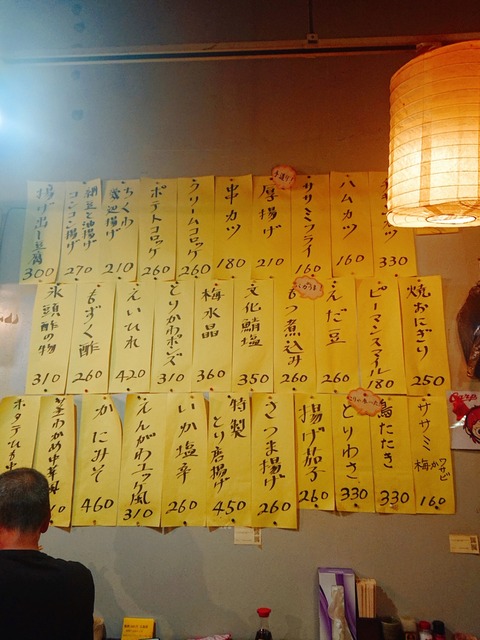 330
ハムカツ
160
ササミフライ
160
手造り!
厚揚げ
210
串カツ
180
クリームコロッケ
260
ポテトコロッケ
260
ちくわ
磯辺揚げ
210
納豆と油揚げ
コンコン揚げ
270
揚げ出し豆腐
300
焼おにぎり
250
ピーマンスマイル
180
えだ豆
260
もつ煮込み
260
文化鯖塩
350
梅水晶
360
とりかわポンズ
310
えいひれ
420
もずく酢
260
氷頭酢の物
310
ササミ
梅か
ワサビ
160
鳥たたき
330
とりわさ
330
揚げ茄子
260
さつま揚げ
260
特製
とり唐揚げ
450
いか塩辛
260
えんがわユッケ風
310
かにみそ
460
茎わかめ中華